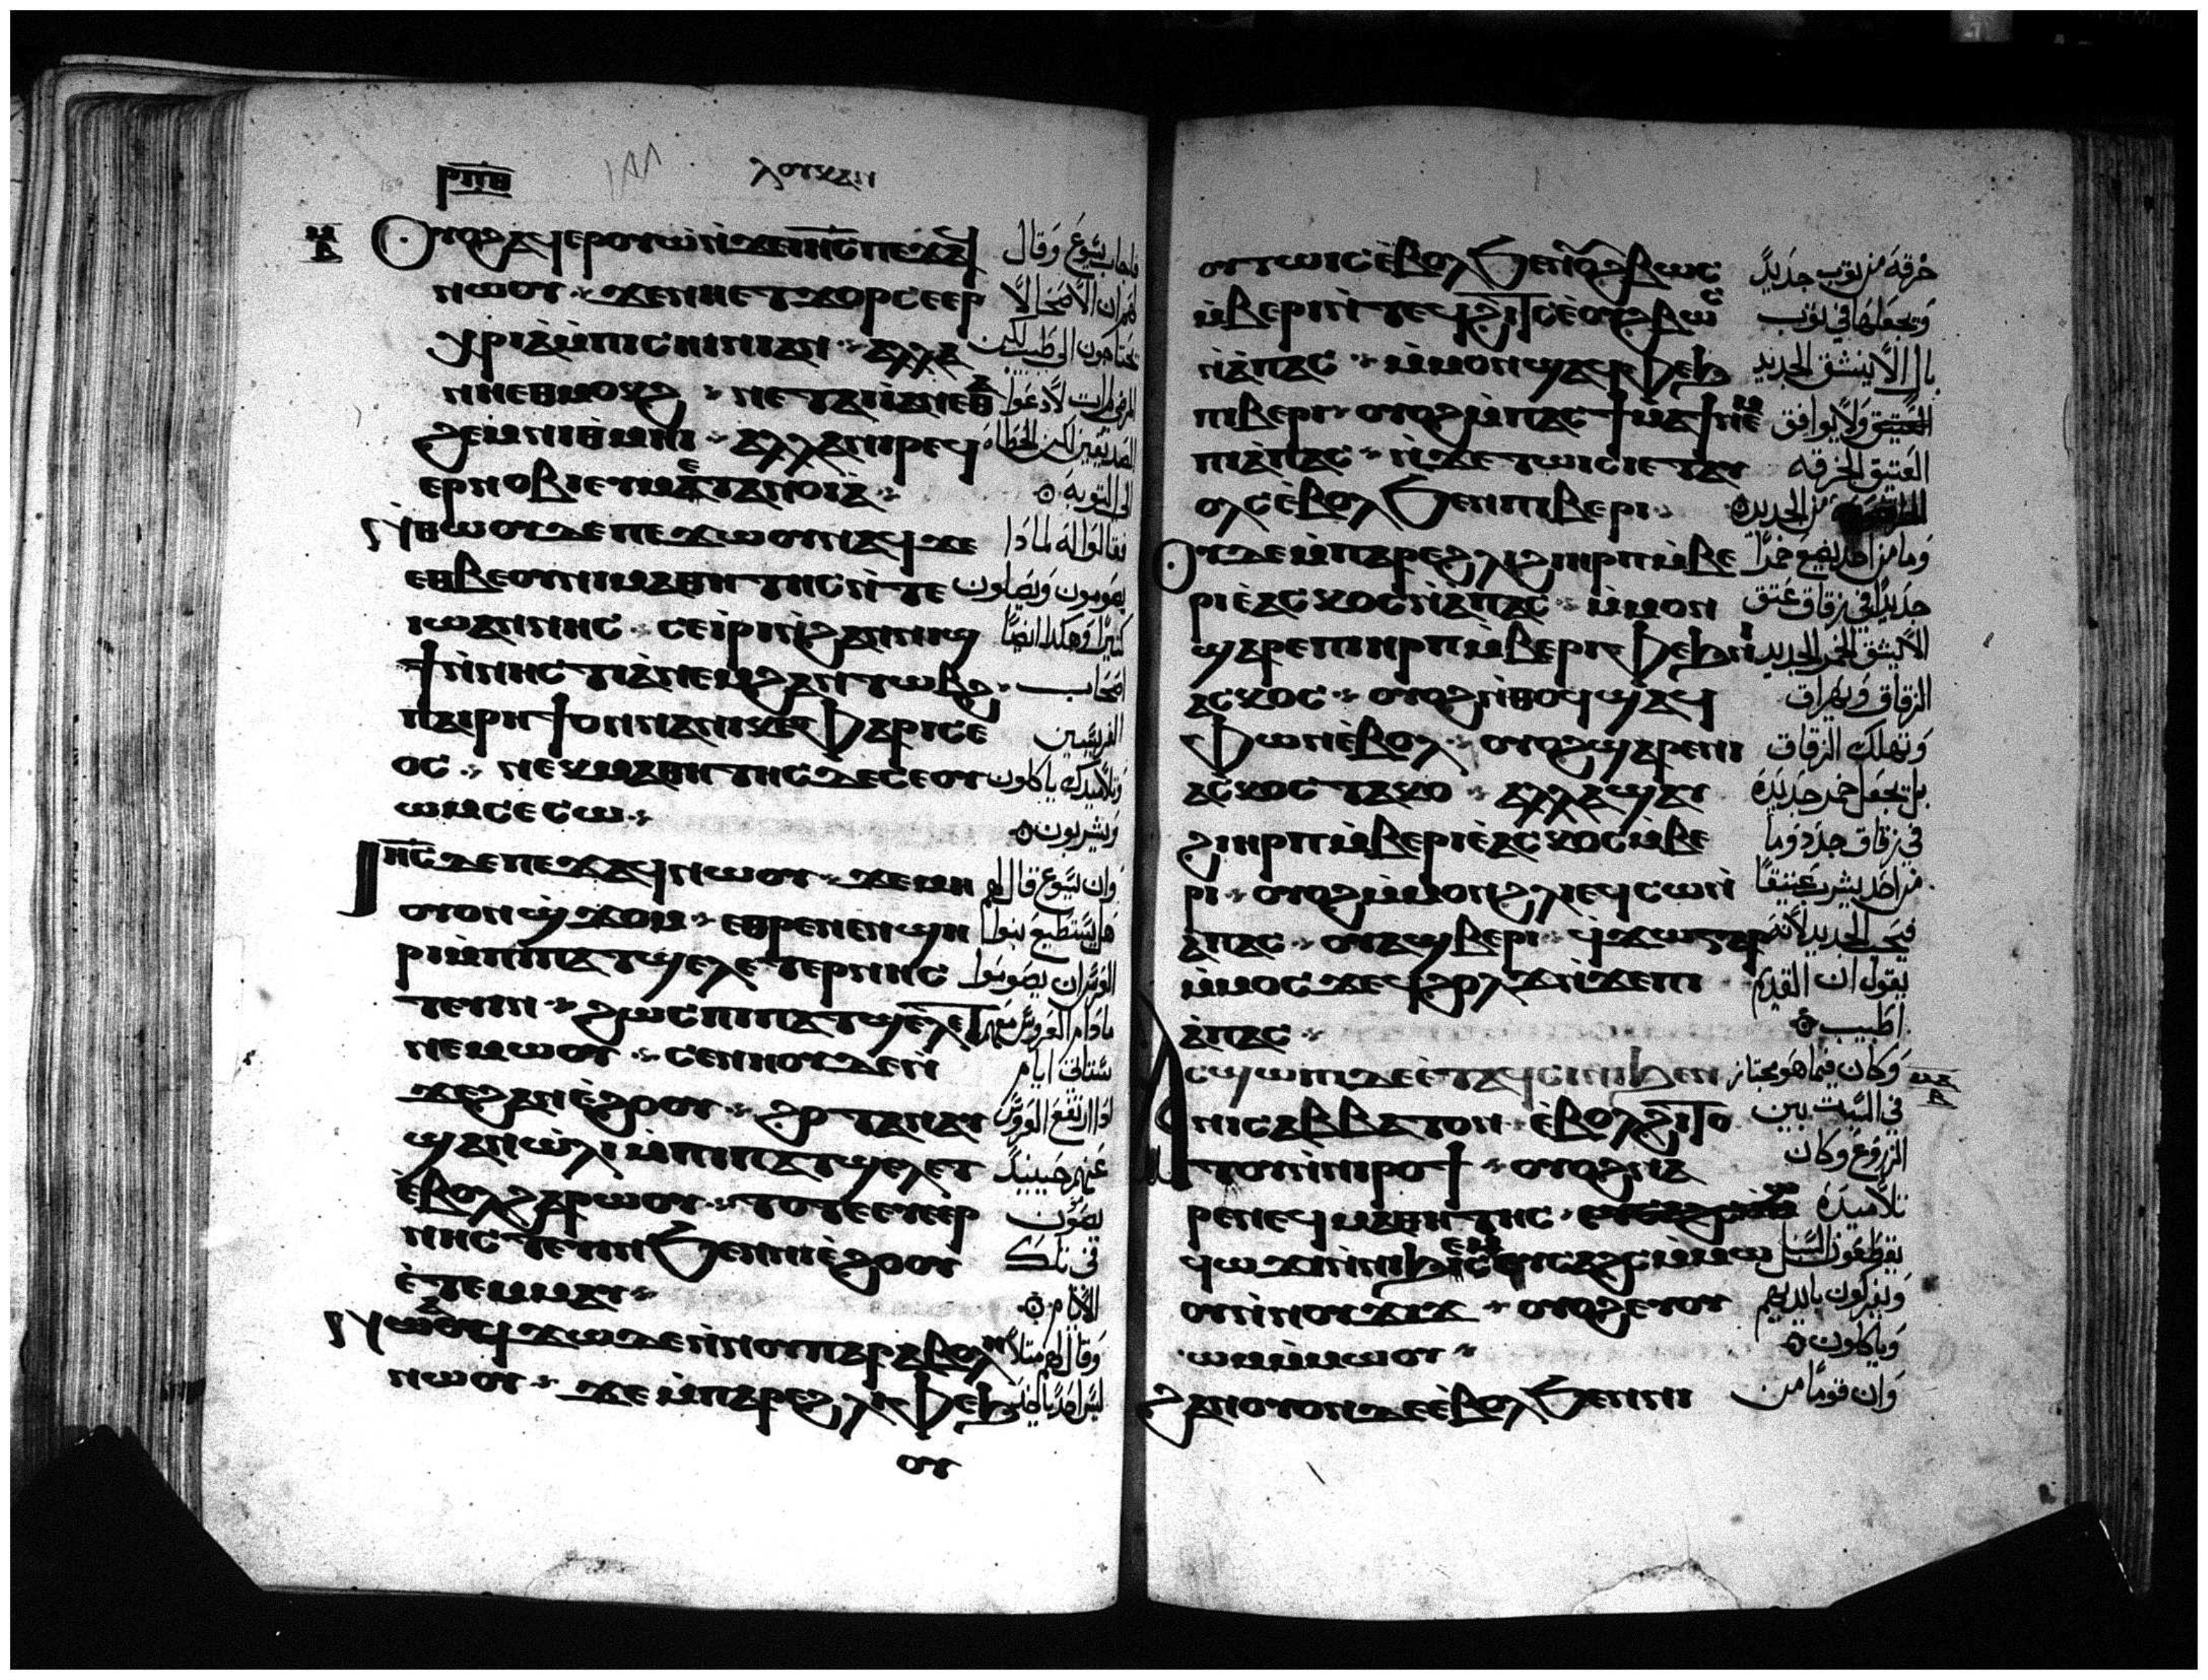 ⲣⲡⲑ ⲗⲟⲩⲕⲁⲛ
ⲟⲩⲟϩ ⲁϥⲉⲣⲟⲩⲱ ⲛ̀ϫⲉ ⲓⲏⲥ ⲡⲉϫⲁϥ
ⲛⲱⲟⲩ ϫⲉ ⲛⲏⲉⲧϫⲟⲣ ⲥⲉⲉⲣ
ⲭⲣⲓⲁ ⲙ̀ⲡⲓⲥⲏⲓⲛⲓ ⲁⲛ ⲁⲗⲗⲁ
ⲛⲏⲉⲑⲙⲟⲕϩ ⲛⲉⲧⲁⲓⲓ̀ ⲁⲛ ⲉⲑ
ϩⲉⲙ ⲛⲓⲑⲙⲏⲓ ⲁⲗⲗⲁ ⲛⲓⲣⲉϥ
ⲉⲣⲛⲟⲃⲓ ⲉⲩⲙⲉⲧⲁⲛⲟⲓⲁ
ⲛⲑⲱⲟⲩ ⲇⲉ ⲡⲉϫⲱⲟⲩ ⲛⲁϥ ϫⲉ
ⲉⲑⲃⲉⲟⲩ ⲛⲓⲙⲁⲑⲏⲧⲏⲥ ⲛ̀ⲧⲉ
ⲓⲱⲁⲛⲛⲏⲥ ⲥⲉⲓⲣⲓ ⲛ̀ϩⲁⲛⲛⲓϣ
ϯ ⲛ̀ⲛⲏⲥⲧⲓⲁ ⲛⲉⲙ ϩⲁⲛⲧⲱⲃϩ
ⲡⲁⲓⲣⲏϯ ⲟⲛ ⲛⲁ ⲛⲓⲕⲉⲫⲁⲣⲓⲥⲉ
ⲟⲥ ⲛⲉⲕⲙⲁⲑⲏⲧⲏⲥ ⲇⲉ ⲥⲉⲟⲩ
ⲱⲙ ⲥⲉⲥⲱ
ⲓⲏⲥ ⲇⲉ ⲡⲉϫⲁϥ ⲛⲱⲟⲩ ϫⲉ ⲙⲏ
ⲟⲩⲟⲛ ϣϫⲟⲙ ⲉⲑⲣⲉ ⲛⲉⲛϣⲏ
ⲣⲓ ⲙ̀ⲡⲓⲡⲁⲧϣⲉⲗⲉⲧ ⲉⲣⲛⲏⲥ
ⲧⲉⲩⲓⲛ ϩⲱⲥ ⲡⲓⲡⲁⲧϣⲉⲗⲉⲧ
ⲛⲉⲙⲱⲟⲩ ⲥⲉⲛⲏⲟⲩ ⲇⲉ ⲛ̀
ϫⲉ ϩⲁⲛⲉ̀ϩⲟⲟⲩ ϩⲟⲧⲁⲛ ⲁⲩ
ϣⲁⲛⲱ̀ⲗⲓ ⲙ̀ⲡⲓⲡⲁⲧϣⲉⲗⲉⲧ
ⲉ̀ⲃⲟⲗ ϩⲁⲣⲱⲟⲩ ⲧⲟⲧⲉ ⲉⲩⲉⲉⲣ
ⲛⲏⲥⲧⲉⲩⲓⲛ ϧⲉⲛ ⲛⲓⲉ̀ϩⲟⲟⲩ
ⲉ̀ⲧⲉⲙⲙⲁⲩ
ⲛⲁϥϫⲱ ⲇⲉ ⲛ̀ⲕⲟⲩⲡⲁⲣⲁⲃⲟⲗⲏ
ⲛⲱⲟⲩ ϫⲉ ⲙ̀ⲡⲁⲣⲉ ϩⲗⲓ ⲫⲉϧ
ⲟⲩ
فاجاب يسوع وقال
لهم ان الاصحا لا
يحتاجون الى طبيب لكن
المرضى لم ات لادعوا
الصديقين لكن الخطاة
الى التوبة
فقالوا له لماذا
يصومون ويصلون
كثيرا وهكذا ايضا
اصحاب
الفريسيين
وتلاميذك ياكلون
ويشربون
وان يسوع قال لهم
هل يستطيع بنوا
العرس ان يصوموا
ما دام العروس معهم
ستاتي ايام
اذا ارتفع العروس
عنهم حينيذ
يصومون
في تلك
الايام
وقال لهم مثلا
ⲟⲩⲧⲱⲓⲥ ⲉ̀ⲃⲟⲗ ϧⲉⲛ ⲟⲩϩⲃⲱⲥ
ⲙ̀ⲃⲉⲣⲓ ⲛ̀ⲧⲉϥϩⲓⲧⲥ ⲉ̀ⲟⲩϩⲃⲱⲥ
ⲛ̀ⲁ̀ⲡⲁⲥ ⲙ̀ⲙⲟⲛ ϣⲁϥⲫⲉϧ
ⲡⲓⲃⲉⲣⲓ ⲟⲩⲟϩ ⲙ̀ⲡⲁⲥϯⲙⲁϯ ⲛⲉⲙ
ⲡⲓⲁ̀ⲡⲁⲥ ⲛ̀ϫⲉ ϯⲧⲱⲓⲥⲓ ⲉⲧⲁⲩ
ⲟⲗⲥ ⲉ̀ⲃⲟⲗ ϧⲉⲛ ⲡⲓⲃⲉⲣⲓ
ⲟⲩⲇⲉ ⲙ̀ⲡⲁⲣⲉ ϩⲗⲓ ϩⲓ ⲏⲣⲡ ⲙ̀ⲃⲉ
ⲣⲓ ⲉ̀ⲁⲥⲕⲟⲥ ⲛ̀ⲁ̀ⲡⲁⲥ ⲙ̀ⲙⲟⲛ
ϣⲁⲣⲉ ⲡⲓⲏⲣⲡ ⲙ̀ⲃⲉⲣⲓ ⲫⲉϧ ⲛⲓ
ⲁⲥⲕⲟⲥ ⲟⲩⲟϩ ⲛ̀ⲑⲟϥ ϣⲁϥ
ⲫⲱⲛ ⲉ̀ⲃⲟⲗ ⲟⲩⲟϩ ϣⲁⲣⲉ ⲛⲓ
ⲁⲥⲕⲟⲥ ⲧⲁⲕⲟ ⲁⲗⲗⲁ ϣⲁⲩ
ϩⲓ ⲏⲣⲡ ⲙ̀ⲃⲉⲣⲓ ⲉ̀ⲁⲥⲕⲟⲥ ⲙ̀ⲃⲉ
ⲣⲓ ⲟⲩⲟϩ ⲙ̀ⲙⲟⲛ ϩⲗⲓ ⲉϥⲥⲱ ⲛ̀
ⲁ̀ⲡⲁⲥ ⲟⲩⲁϣ ⲃⲉⲣⲓ ϥϫⲱ ⲅⲁⲣ
ⲙ̀ⲙⲟⲥ ϫⲉ ϥϩⲟⲗϫ ⲛ̀ϫⲉ ⲡⲓ
ⲁ̀ⲡⲁⲥ
ⲁⲥϣⲱⲡⲓ ⲇⲉ ⲉ̀ⲧⲁϥⲥⲓⲛⲓ ϧⲉⲛ
ⲛⲓⲥⲁⲃⲃⲁⲧⲟⲛ ⲉ̀ⲃⲟⲗ ϩⲓⲧⲟ
ⲧⲟⲩ ⲛ̀ⲛⲓⲣⲟϯ ⲟⲩⲟϩ ⲛⲁ
ⲣⲉ ⲛⲉϥⲙⲁⲑⲏⲧⲏⲥ
ϥⲱϫⲓ ⲛ̀ⲛⲓϧⲉⲙⲥ ⲉⲩⲥⲁϩⲥⲓ ⲙ̀ⲙⲱ
ⲟⲩ ⲛ̀ⲛⲟⲩϫⲓϫ ⲟⲩⲟϩ ⲉⲩⲟⲩ
ⲱⲙ ⲙ̀ⲙⲱⲟⲩ
ϩⲁⲛⲟⲩⲟⲛ ⲇⲉ ⲉ̀ⲃⲟⲗ ϧⲉⲛ ⲛⲓ
خرقة من ثوب جديد
وتجعلها في ثوب
بال الا ينشق الجديد
العتيق ولا يوافق
العتيق الخرقة
من الجديدة
وما من احد يضع خمرا
جديدا في زقاق عتق
الا ينشق الخمر الجديد
الزقاق ويهراق
وتهلك الزقاق
بل تجعل خمر جديدة
في زقاق جدد وما
من احد يشرب عتيقا
فيحب الجديد لانه
يقول ان القديم
اطيب
وكان فيما هو مجتاز
في السبت بين
الزروع وكان
تلاميذه
يقطعون السنبل
ويفركون بايديهم
وياكلون
وان قوما من